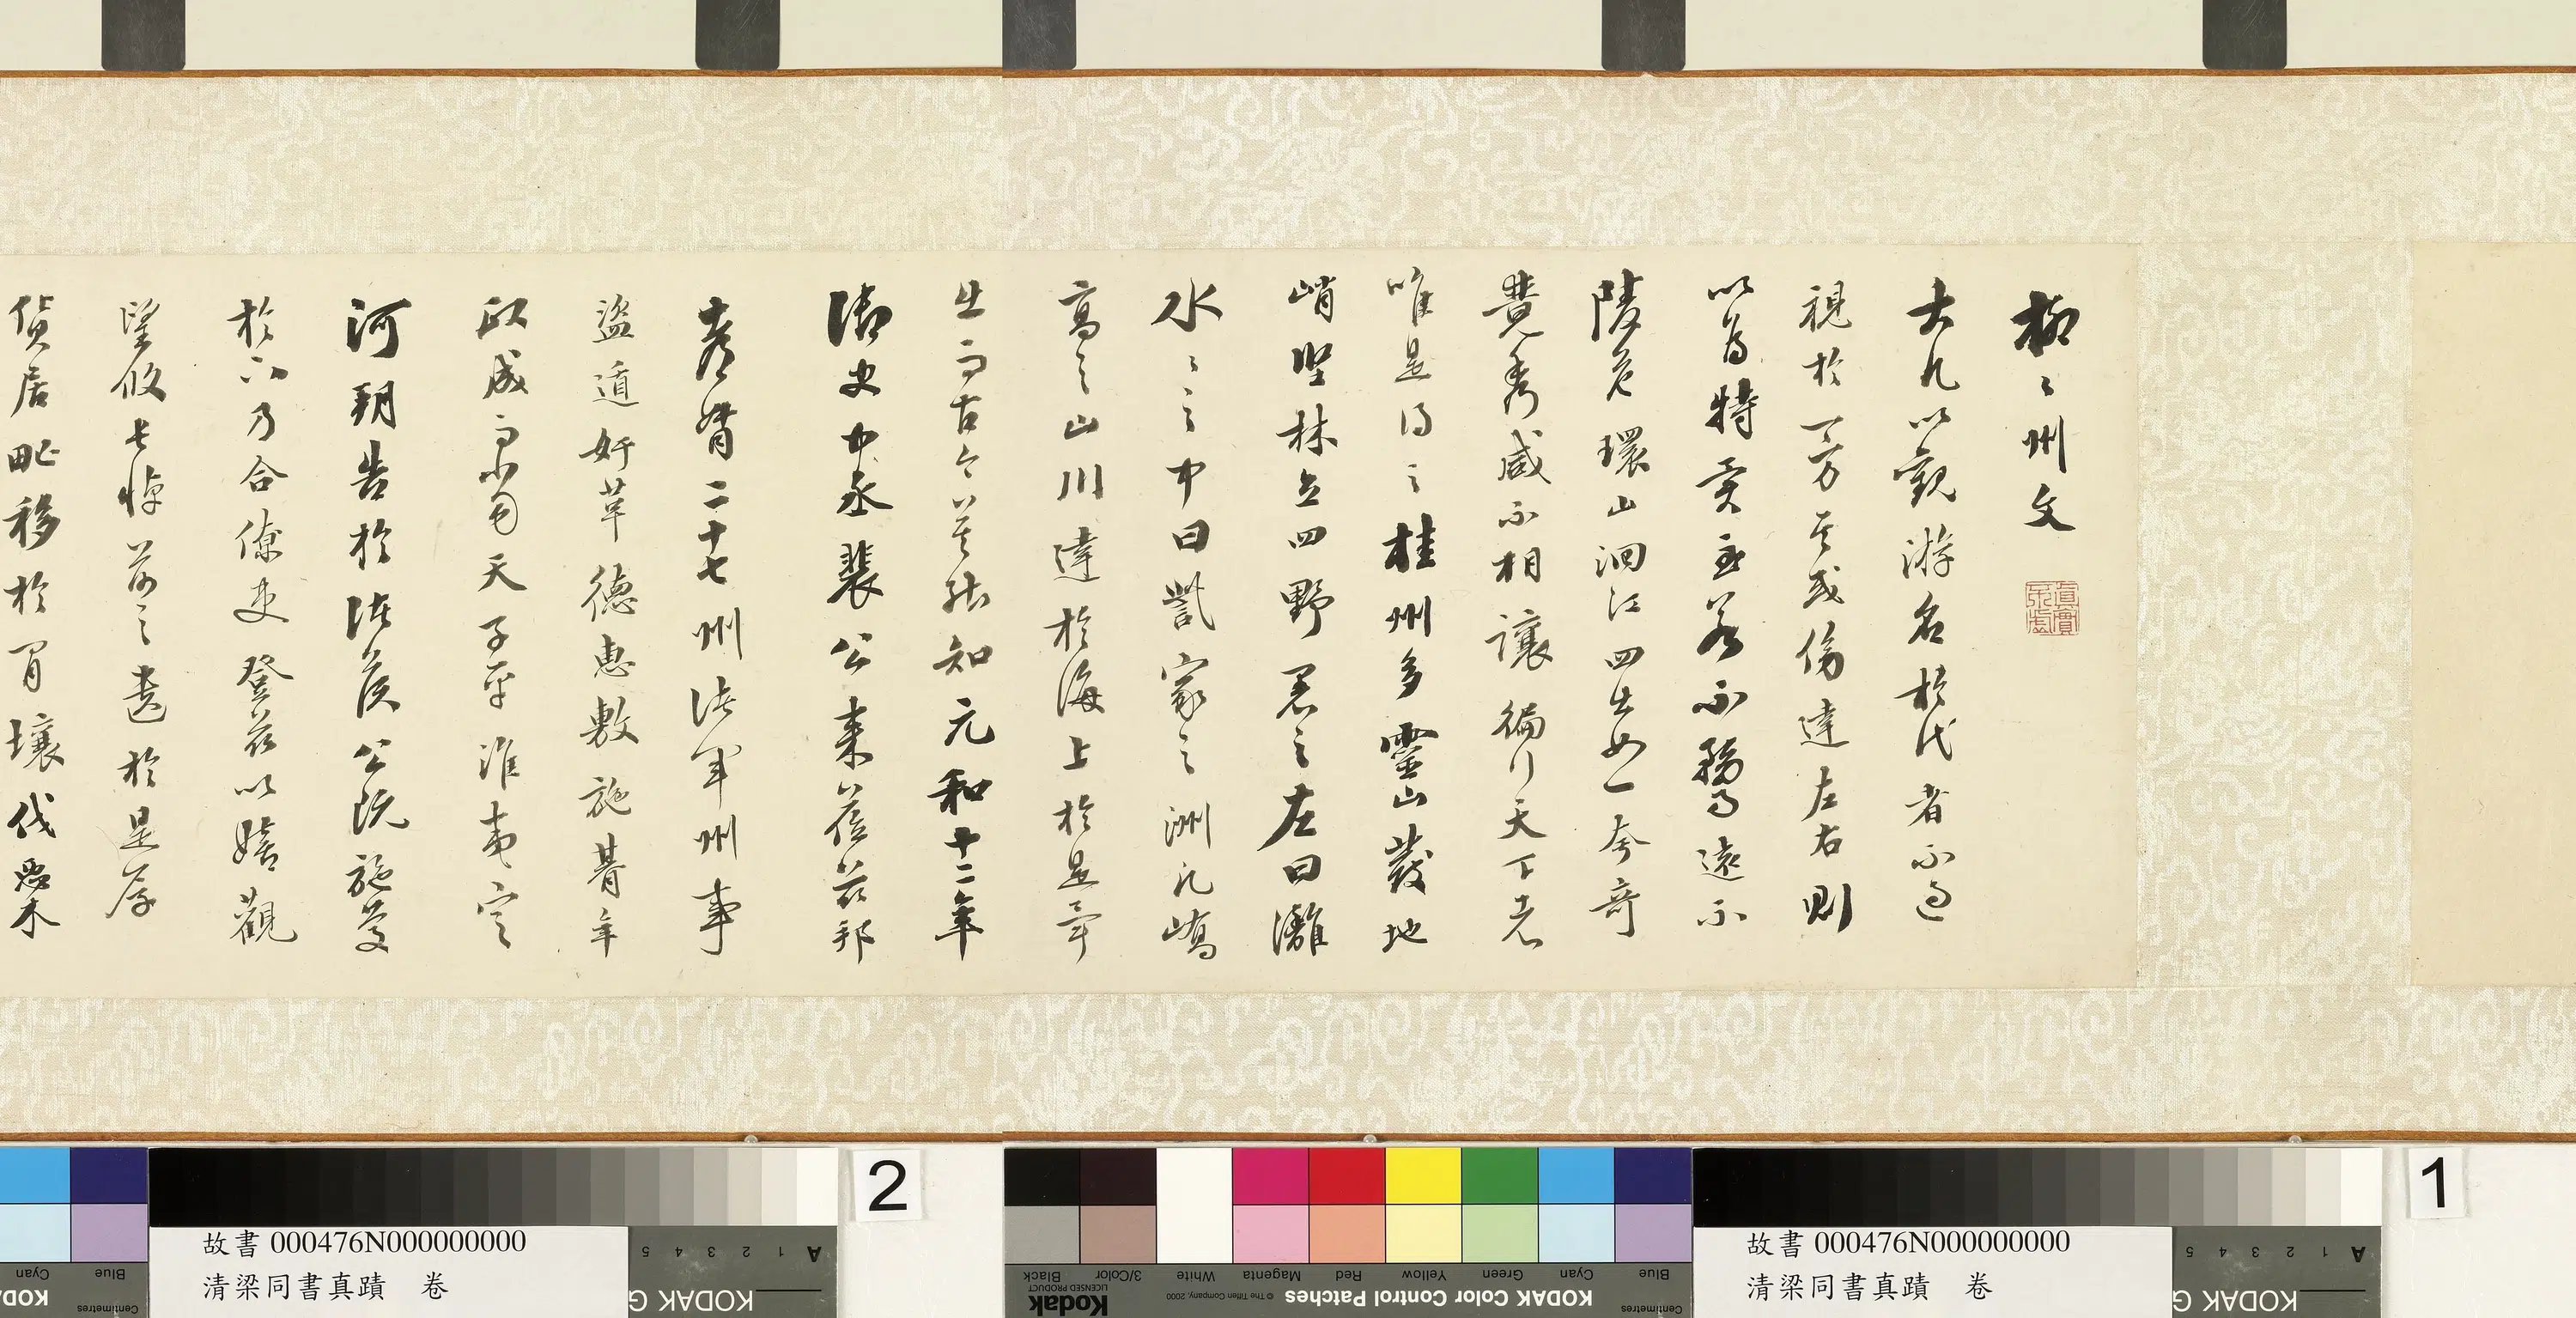 柳〻州文
真實 不虛
大凡以觀游名於代者不過
視於一方其或傍達左右則
以為特異至若不騖遠不
陵危環山洄江四出如一夸奇
競秀咸不相讓徧行天下者
唯是得之桂州多靈山發地
峭竪林立四野署之左曰灕
水〻之中曰訾家之洲凡嶠
南之山川達於海上於是畢
出而古今莫能知元和十二年
御史中丞裴公來蒞茲邦
都督二十七州諸軍州事
盜遁奸革德惠敷施朞年
政成而當天子平淮夷定
河朔告於諸侯公既施慶
於下乃合僚吏登茲以嬉觀
望攸長悼前之遺於是厚
貨居甿移於閒壤伐惡木
2
1
故書 000476N000000000
清梁同書真蹟 卷
故書 000476N000000000
清梁同書真蹟 卷
KODAK Color Control Patches
© The Tiffen Company, 2000
Kodak
LICENSED PRODUCT
Blue Cyan Green Yellow Red Magenta White 3/Color Black
Centimetres
Blue Cyan
Centimetres
KODAK G
KODAK G
A 1 2 3 4 5
A 1 2 3 4 5